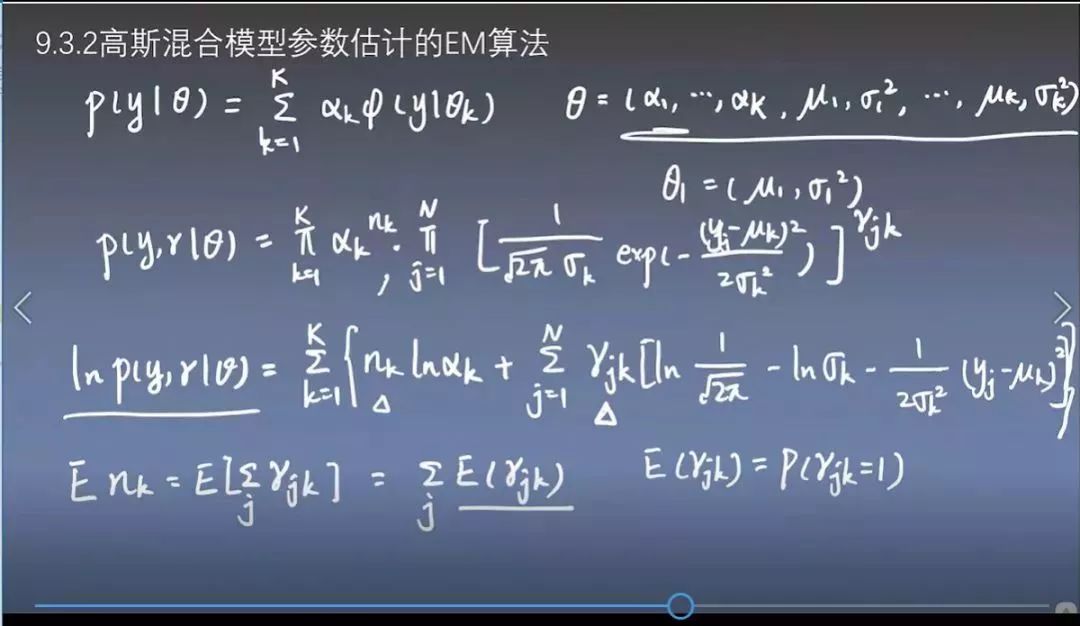 9.3.2高斯混合模型参数估计的EM算法
p(y|θ) = Σ_{k=1}^{K} α_k φ(y|θ_k)    θ = (α_1, ⋯, α_K, μ_1, σ_1^2, ⋯, μ_K, σ_K^2)
θ_1 = (μ_1, σ_1^2)
p(y,γ|θ) = ∏_{k=1}^{K} α_k^{n_k} · ∏_{j=1}^{N} [ 1/(√2π σ_k) exp(− (y_j−μ_k)^2 / 2σ_k^2 ) ]^{γ_jk}
ln p(y,γ|θ) = Σ_{k=1}^{K} { n_k ln α_k + Σ_{j=1}^{N} γ_jk [ln 1/√2π − ln σ_k − 1/2σ_k^2 (y_j−μ_k)^2] }
E n_k = E[Σ_j γ_jk] = Σ_j E(γ_jk)    E(γ_jk) = P(γ_jk=1)